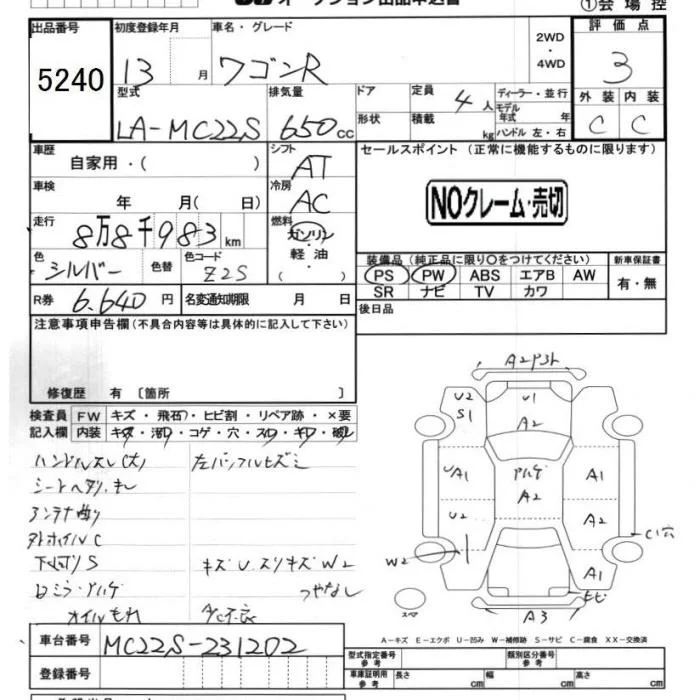 ①会場控
出品番号 初度登録年月 車名・グレード 2WD ・ 4WD 評価点
5240 13 月 ワゴンR 3
型式 排気量 ドア 定員 4 人 ディーラー・並行 外装 内装
LA-MC22S 650 cc 形状 積載 kg モデル年式 年 ハンドル 左・右 C C
車歴 自家用・( ) シフト AT セールスポイント (正常に機能するものに限ります)
車検 年 月( 日) 冷房 AC NOクレーム・売切
走行 8万8千983 km 燃料 ガソリン・軽油・( )
色 シルバー 色替 色コード Z2S
装備品 (純正品に限り○をつけてください) 新車保証書
PS PW ABS エアB AW 有・無
SR ナビ TV カワ
R券 6,640 円 名変通知期限 月 日 後日品
注意事項申告欄 (不具合内容等は具体的に記入して下さい)
修復歴 有 〔箇所 〕
検査員 FW キズ・飛石・ヒビ割・リペア跡・×要
記入欄 内装 キズ・汚レ・コゲ・穴・スレ・キレ・破レ
ハンドルスレ(大) 左バンフルヒズミ
シートヘタリ、キレ
アンテナ曲り
タトホイルC
下廻り S キズ U. スリキズ W2
ロミラーハゲ つやなし
オイルもれ AC不良
A2 P3ト
U2 S1 U1 A2
UA1 ハゲ A2 A1
U2 A2
C1穴
W2 A1
ヒビ
スペア A3
A-キズ E-エクボ U-凹み W-補修跡 S-サビ C-腐食 XX-交換済
車台番号 MC22S-231202
登録番号
型式指定番号 参考 類別区分番号 参考
車庫証明用 参考 長さ cm 幅 cm 高さ cm